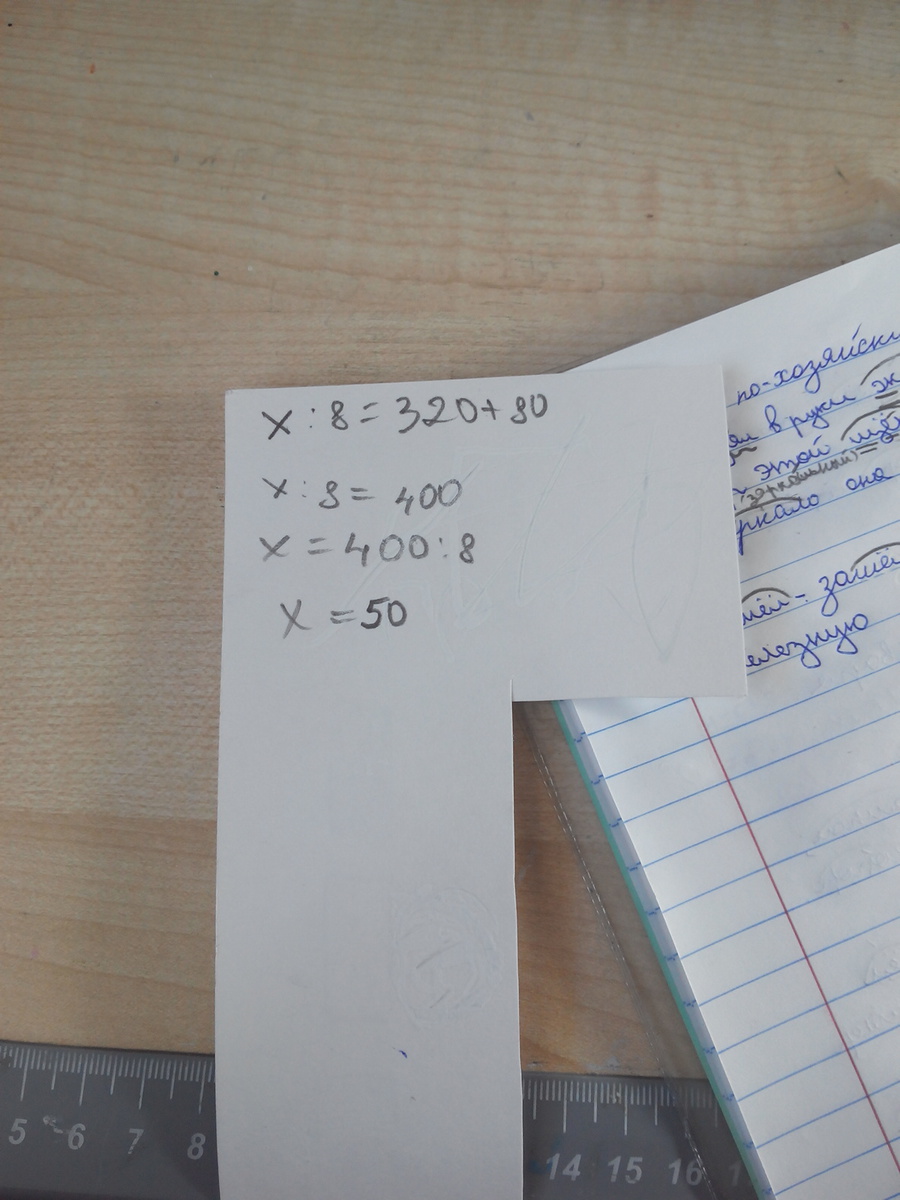 x : 8 = 320 + 80
x : 8 = 400
x = 400 : 8
x = 50
по-хозяйски
в руки
этой
(зеркальный)
она
железную
5 6 7 8 14 15 16